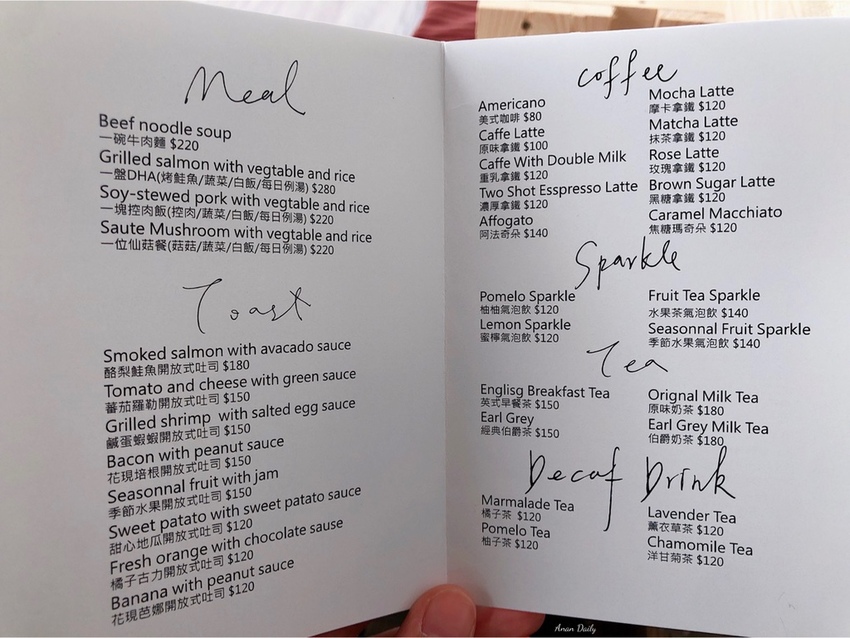 Meal
Beef noodle soup
一碗牛肉麵 $220
Grilled salmon with vegtable and rice
一盤DHA(烤鮭魚/蔬菜/白飯/每日例湯) $280
Soy-stewed pork with vegtable and rice
一塊控肉飯(控肉/蔬菜/白飯/每日例湯) $220
Saute Mushroom with vegtable and rice
一位仙菇餐(菇菇/蔬菜/白飯/每日例湯) $220
Toast
Smoked salmon with avacado sauce
酪梨鮭魚開放式吐司 $180
Tomato and cheese with green sauce
蕃茄羅勒開放式吐司 $150
Grilled shrimp with salted egg sauce
鹹蛋蝦蝦開放式吐司 $150
Bacon with peanut sauce
花現培根開放式吐司 $150
Seasonnal fruit with jam
季節水果開放式吐司 $150
Sweet patato with sweet patato sauce
甜心地瓜開放式吐司 $120
Fresh orange with chocolate sause
橘子古力開放式吐司 $120
Banana with peanut sauce
花現芭娜開放式吐司 $120
coffee
Americano
美式咖啡 $80
Caffe Latte
原味拿鐵 $100
Caffe With Double Milk
重乳拿鐵 $120
Two Shot Esspresso Latte
濃厚拿鐵 $120
Affogato
阿法奇朵 $140
Mocha Latte
摩卡拿鐵 $120
Matcha Latte
抹茶拿鐵 $120
Rose Latte
玫瑰拿鐵 $120
Brown Sugar Latte
黑糖拿鐵 $120
Caramel Macchiato
焦糖瑪奇朵 $120
Sparkle
Pomelo Sparkle
柚柚氣泡飲 $120
Lemon Sparkle
蜜檸氣泡飲 $120
Fruit Tea Sparkle
水果茶氣泡飲 $140
Seasonnal Fruit Sparkle
季節水果氣泡飲 $140
Tea
Englisg Breakfast Tea
英式早餐茶 $150
Earl Grey
經典伯爵茶 $150
Orignal Milk Tea
原味奶茶 $180
Earl Grey Milk Tea
伯爵奶茶 $180
Decaf Drink
Marmalade Tea
橘子茶 $120
Pomelo Tea
柚子茶 $120
Lavender Tea
薰衣草茶 $120
Chamomile Tea
洋甘菊茶 $120
Anan Daily